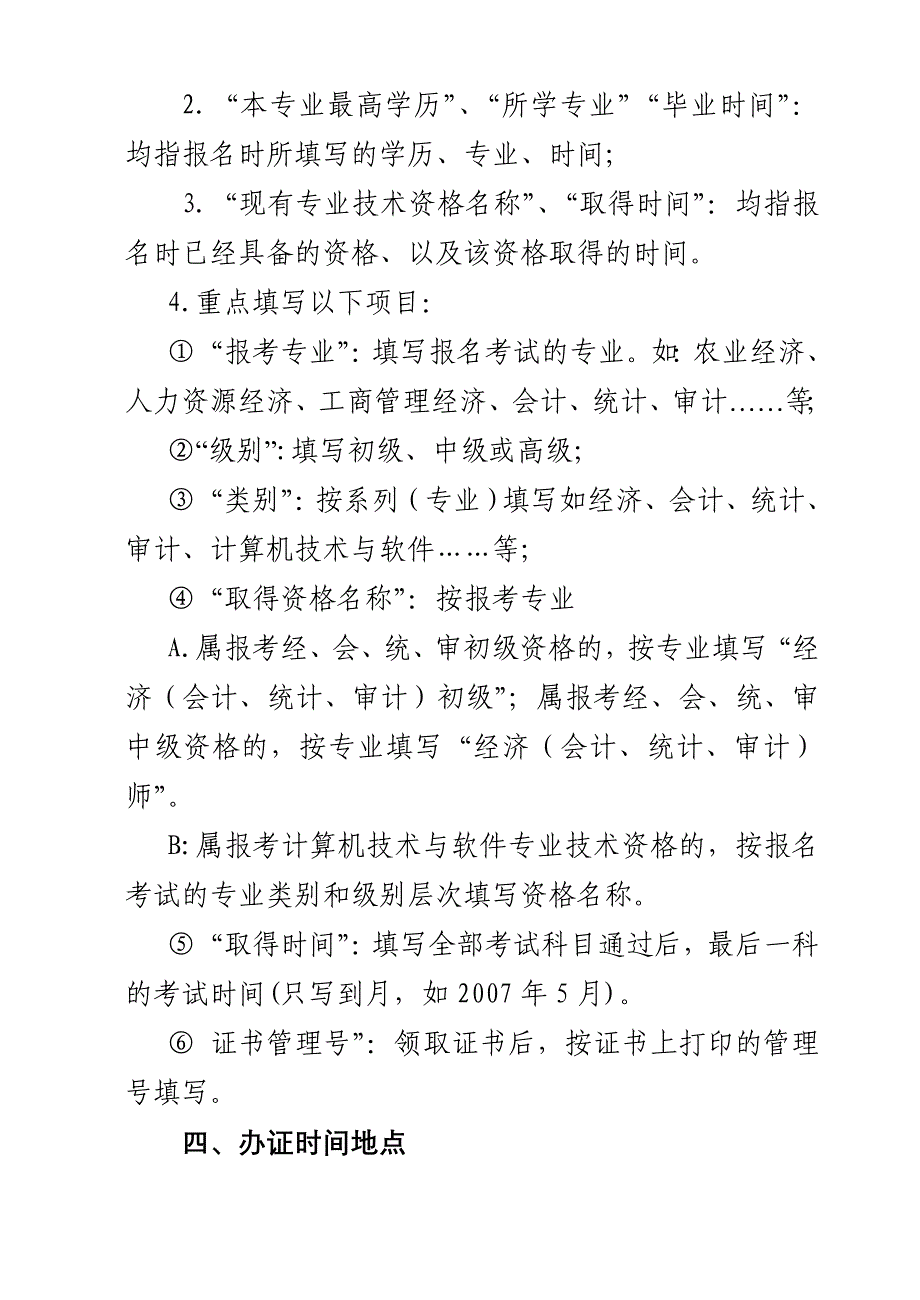 2. “本专业最高学历”、“所学专业”“毕业时间”:
均指报名时所填写的学历、专业、时间;
3. “现有专业技术资格名称”、“取得时间”: 均指报
名时已经具备的资格、以及该资格取得的时间。
4.重点填写以下项目:
① “报考专业”: 填写报名考试的专业。如: 农业经济、
人力资源经济、工商管理经济、会计、统计、审计……等;
②“级别”: 填写初级、中级或高级;
③ “类别”: 按系列(专业)填写如经济、会计、统计、
审计、计算机技术与软件……等;
④ “取得资格名称”: 按报考专业
A.属报考经、会、统、审初级资格的, 按专业填写 “经
济(会计、统计、审计)初级”; 属报考经、会、统、审
中级资格的, 按专业填写 “经济(会计、统计、审计)
师”。
B:属报考计算机技术与软件专业技术资格的, 按报名
考试的专业类别和级别层次填写资格名称。
⑤ “取得时间”: 填写全部考试科目通过后, 最后一科
的考试时间(只写到月, 如 2007 年 5 月)。
⑥ 证书管理号”: 领取证书后, 按证书上打印的管理
号填写。
四、办证时间地点